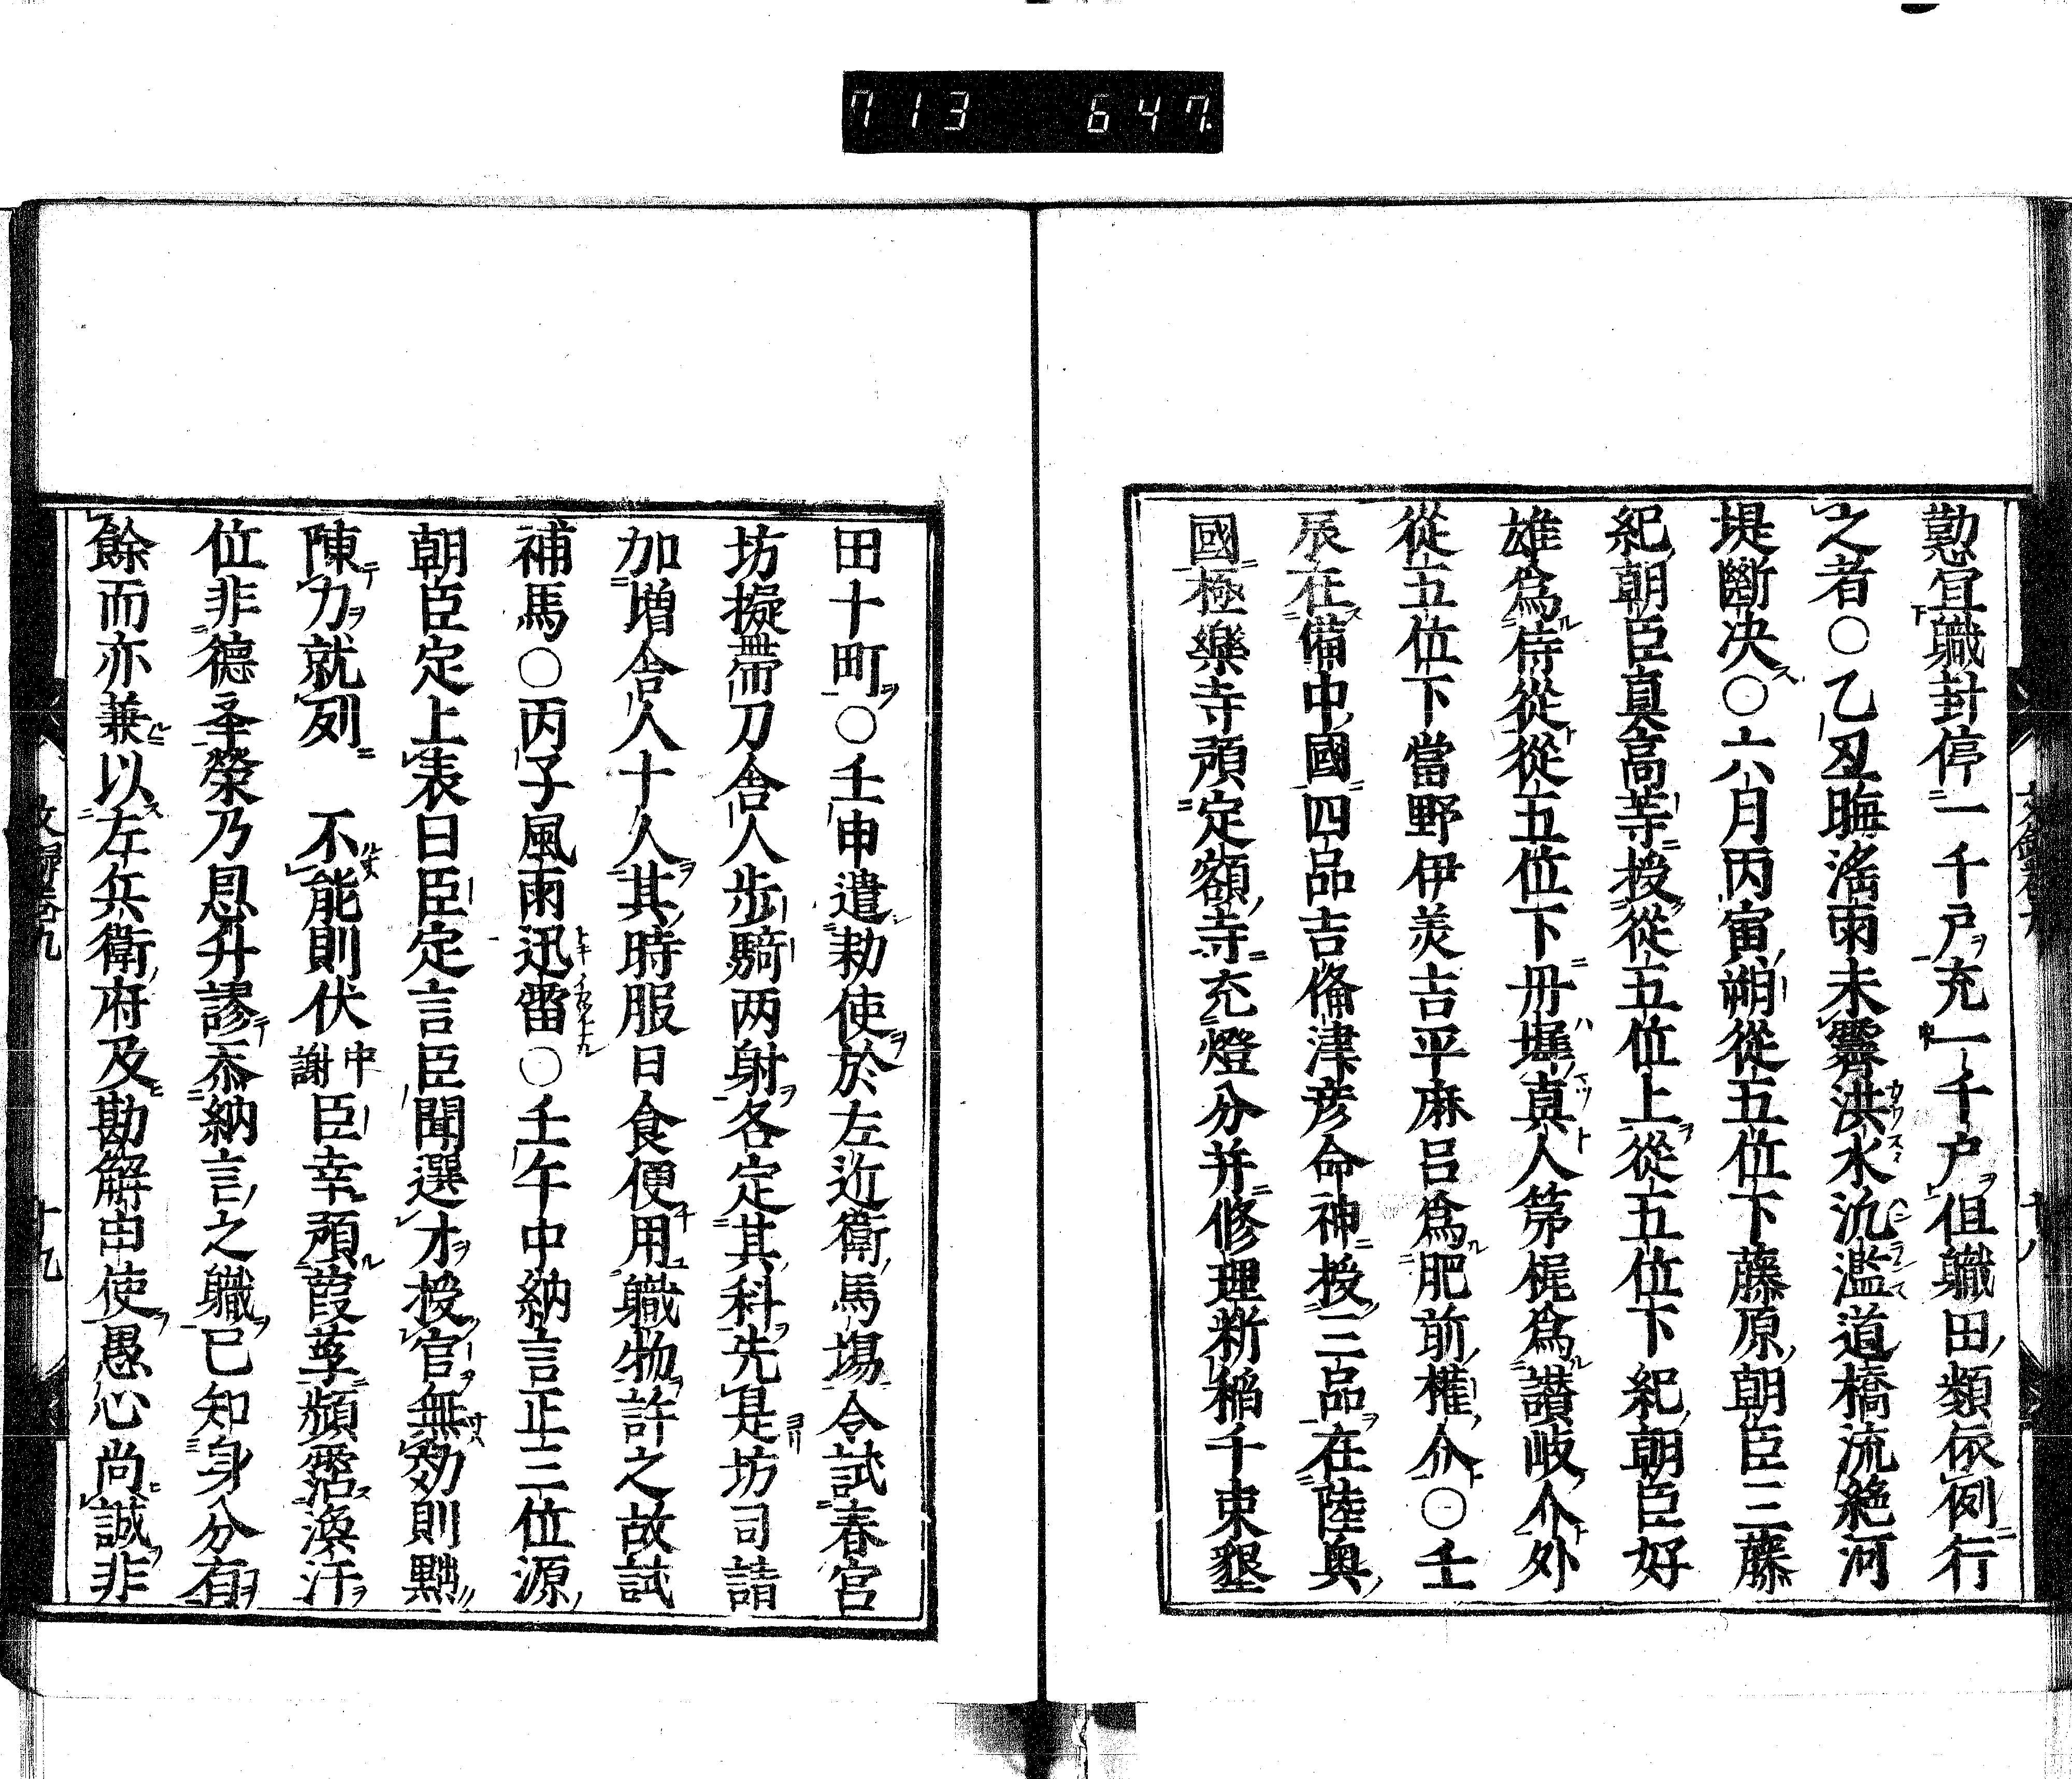 713 647
懃宜職封停一千戸充一千戸但職田類依例行
之者〇乙丑晦滛雨未霽洪水氾濫道橋流絶河
堤斷决〇六月丙寅朔從五位下藤原朝臣三藤
紀朝臣真高等授從五位上從五位下紀朝臣好
雄為侍從從五位下丹墀真人筇梶為讃岐介外
從五位下當野伊美吉平麻呂為肥前權介〇壬
辰在備中國四品吉備津彦命神授三品在陸奥
國極樂寺預定額寺充燈分并修理料稲千束墾
田十町〇壬申遣勅使於左近衛馬塲令試春宮
坊擬帶刀舎人歩騎两射各定其科先是坊司請
加増舎人十人其時服日食便用職物許之故試
補馬〇丙子風雨迅雷〇壬午中納言正三位源
朝臣定上表曰臣定言臣聞選才授官無効則黜
陳力就列 不能則伏中謝臣幸預葭莩頻霑渙汗
位非德夆榮乃恩升謬忝納言之職已知身分有
餘而亦兼以左兵衛府及勘解由使愚心尚誠非